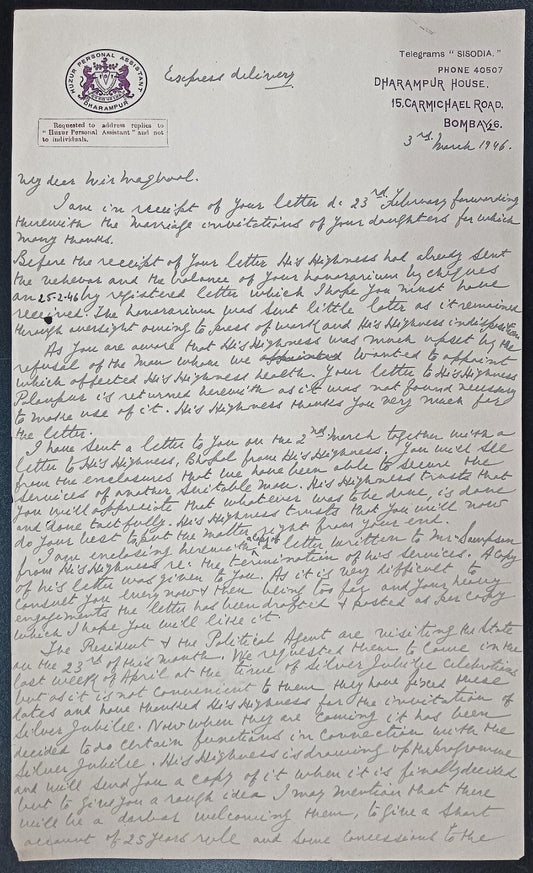 HUZUR PERSONAL ASSISTANT
DHARAMPUR
Requested to address replies to
"Huzur Personal Assistant" and not
to individuals.
Express delivery
Telegrams "SISODIA."
PHONE 40507
DHARAMPUR HOUSE,
15, CARMICHAEL ROAD,
BOMBAY 26.
3rd March 1946.
My dear Mir Maqbool.
I am in receipt of your letter d: 23rd February forwarding
therewith the marriage invitations of your daughters for which
many thanks.
Before the receipt of your letter His Highness had already sent
the and the balance of your honorarium by cheques
on 25-2-46 by registered letter which I hope you must have
received. The honorarium was sent little later as it remained
through oversight owing to press of work and His Highness indisposition
As you are aware that His Highness was much upset by the
refusal of the man whom we appointed wanted to appoint
which affected His Highness health. Your letter to His Highness
Palanpur is returned herewith as it was not found necessary
to make use of it. His Highness thanks you very much for
the letter.
I have sent a letter to you on the 2nd March together with a
letter to His Highness, Bhopal from His Highness. You will see
from the enclosures that we have been able to secure the
services of another suitable man. His Highness trusts that
you will appreciate that whatever was to be done, is done
and done tactfully. His Highness trusts that you will now
do your best to put the matter right from your end.
I am enclosing herewith a copy of a letter written to Mr. Sampson
from His Highness re: the termination of his services. A copy
of his letter was given to you. As it is very difficult to
consult you every now & then being too far and your heavy
engagements the letter has been drafted & posted as per copy
which I hope you will like it.
The Resident & the Political Agent are visiting the State
on the 23rd of this month. We requested them to come in the
last week of April at the time of Silver Jubilee celebrations
but as it is not convenient to them they have fixed these
dates and have thanked His Highness for the invitation of
Silver Jubilee. Now when they are coming it has been
decided to do certain functions in connection with the
Silver Jubilee. His Highness is drawing up the programme
and will send you a copy of it when it is finally decided
but to give you a rough idea I may mention that there
will be a darbar welcoming them, to give a short
account of 25 years rule and some concessions to the